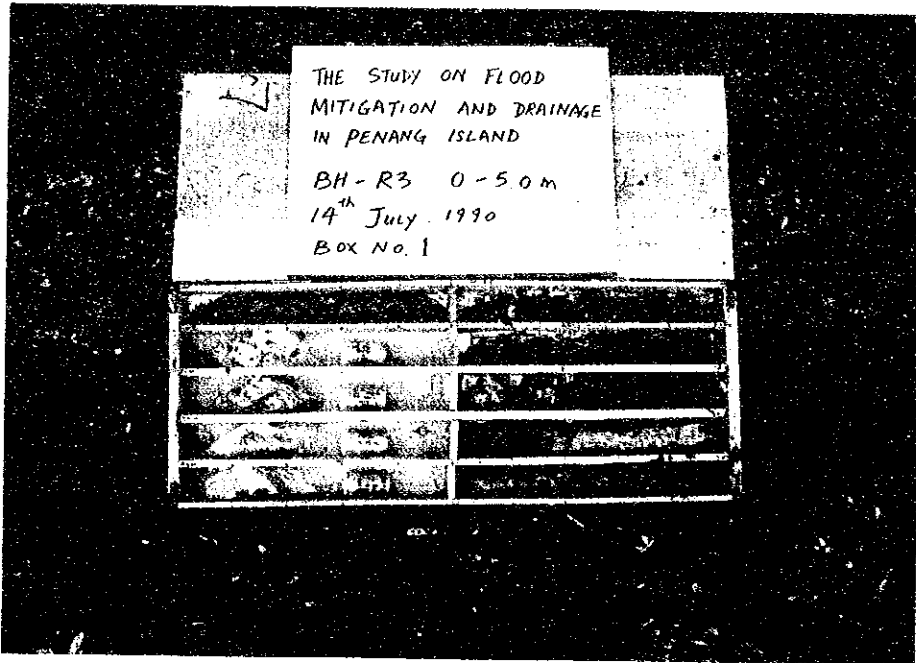 THE STUDY ON FLOOD
MITIGATION AND DRAINAGE
IN PENANG ISLAND
BH - R3 0 - 5.0 m
14th July. 1990
BOX NO. 1